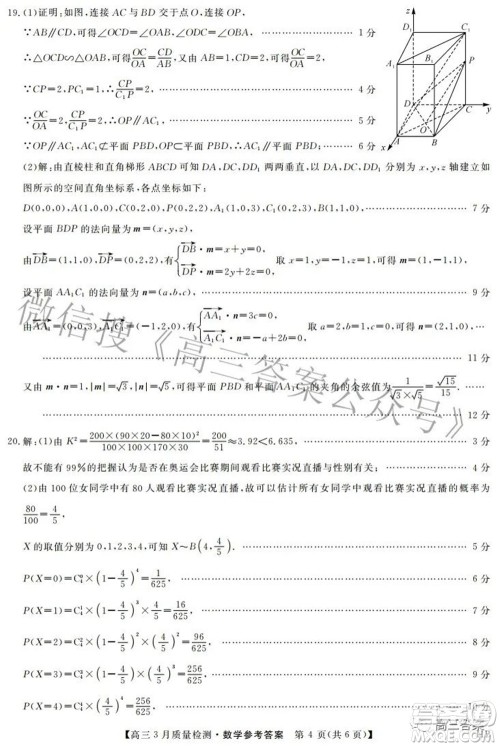 19.(1)证明:如图,连接 AC 与 BD 交于点 O,连接 OP,
∵AB∥CD,可得∠OCD=∠OAB,∠ODC=∠OBA. 1 分
∴△OCD∽△OAB,可得OC/OA=CD/AB,又由 AB=1,CD=2,可得OC/OA=2,
∵CP=2,PC₁=1,∴CP/C₁P=2. 4 分
∵OC/OA=CP/C₁P=2,∴OP∥AC₁, 5 分
∵OP∥AC₁,AC₁⊄平面 BDP,OP⊂平面 BDP,∴AC₁∥平面 BDP; 6 分
(2)解:由直棱柱和直角梯形 ABCD 可知 DA,DC,DD₁ 两两垂直,以 DA,DC,DD₁ 分别为 x,y,z 轴建立如
图所示的空间直角坐标系,各点坐标如下:
D(0,0,0),A(1,0,0),C(0,2,0),P(0,2,2),A₁(1,0,3),C₁(0,2,3),B(1,1,0), 7 分
设平面 BDP 的法向量为 m=(x,y,z),
由DB=(1,1,0),DP=(0,2,2),有{DB·m=x+y=0, DP·m=2y+2z=0, 取 x=1,y=-1,z=1,可得 m=(1,-1,1),
9 分
设平面 AA₁C₁ 的法向量为 n=(a,b,c),
由AA₁=(0,0,3),A₁C₁=(-1,2,0),有{AA₁·n=3c=0, A₁C₁·n=-a+2b=0, 取 a=2,b=1,c=0,可得 n=(2,1,0),
11 分
又由 m·n=1,|m|=√3,|n|=√5,可得平面 PBD 和平面 AA₁C₁ 的夹角的余弦值为1/(√3×√5)=√15/15.
12 分
20.解:(1)由 K²=200×(90×20-80×10)²/(100×100×170×30)=200/51≈3.92<6.635, 3 分
故不能有 99%的把握认为是否在奥运会比赛期间观看比赛实况直播与性别有关; 4 分
(2)由 100 位女同学中有 80 人观看比赛实况直播,故可以估计所有女同学中观看比赛实况直播的概率为
80/100=4/5,
X 的取值分别为 0,1,2,3,4,可知 X~B(4,4/5). 5 分
P(X=0)=C₄⁰×(1-4/5)⁴=1/625, 6 分
P(X=1)=C₄¹×(1-4/5)³×4/5=16/625, 7 分
P(X=2)=C₄²×(1-4/5)²×(4/5)²=96/625, 8 分
P(X=3)=C₄³×(1-4/5)×(4/5)³=256/625, 9 分
P(X=4)=C₄⁴×(4/5)⁴=256/625, 10 分
【高三3月质量检测·数学参考答案 第 4 页(共 6 页)】
微信搜《高三答案公众号》
z
D₁
C₁
A₁
B₁
P
D
C
y
A
O
B
x